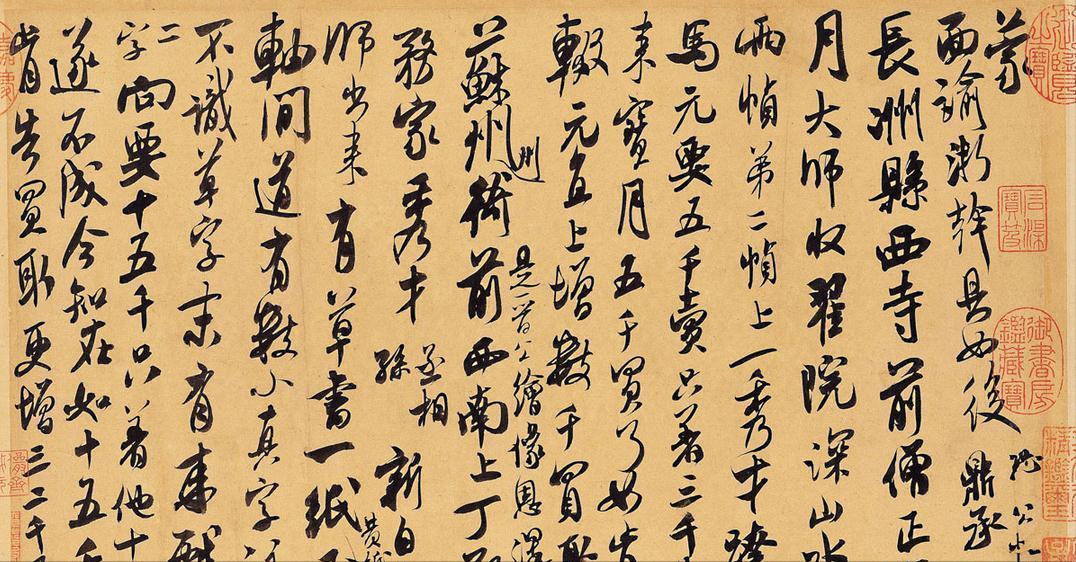 蒙
面諭浙幹具如後
鼎丞
長洲縣西寺前僧正
月大師收翟院深山水
兩幀第二幀上一秀才跨
馬元要五千賣只著三千
來寶月五千買了如肯
輟元直上增數千買取
是一晉公繪像恩澤
一蘇州衙前西南上丁
州
務家秀才
丞相
孫
新自
師出來有草書一紙
黃紙
軸間道有數小真字
不識草字末有來戲
二字向要十五千只著他十
遂不成今知在如十五千
肯告買取更增三二千